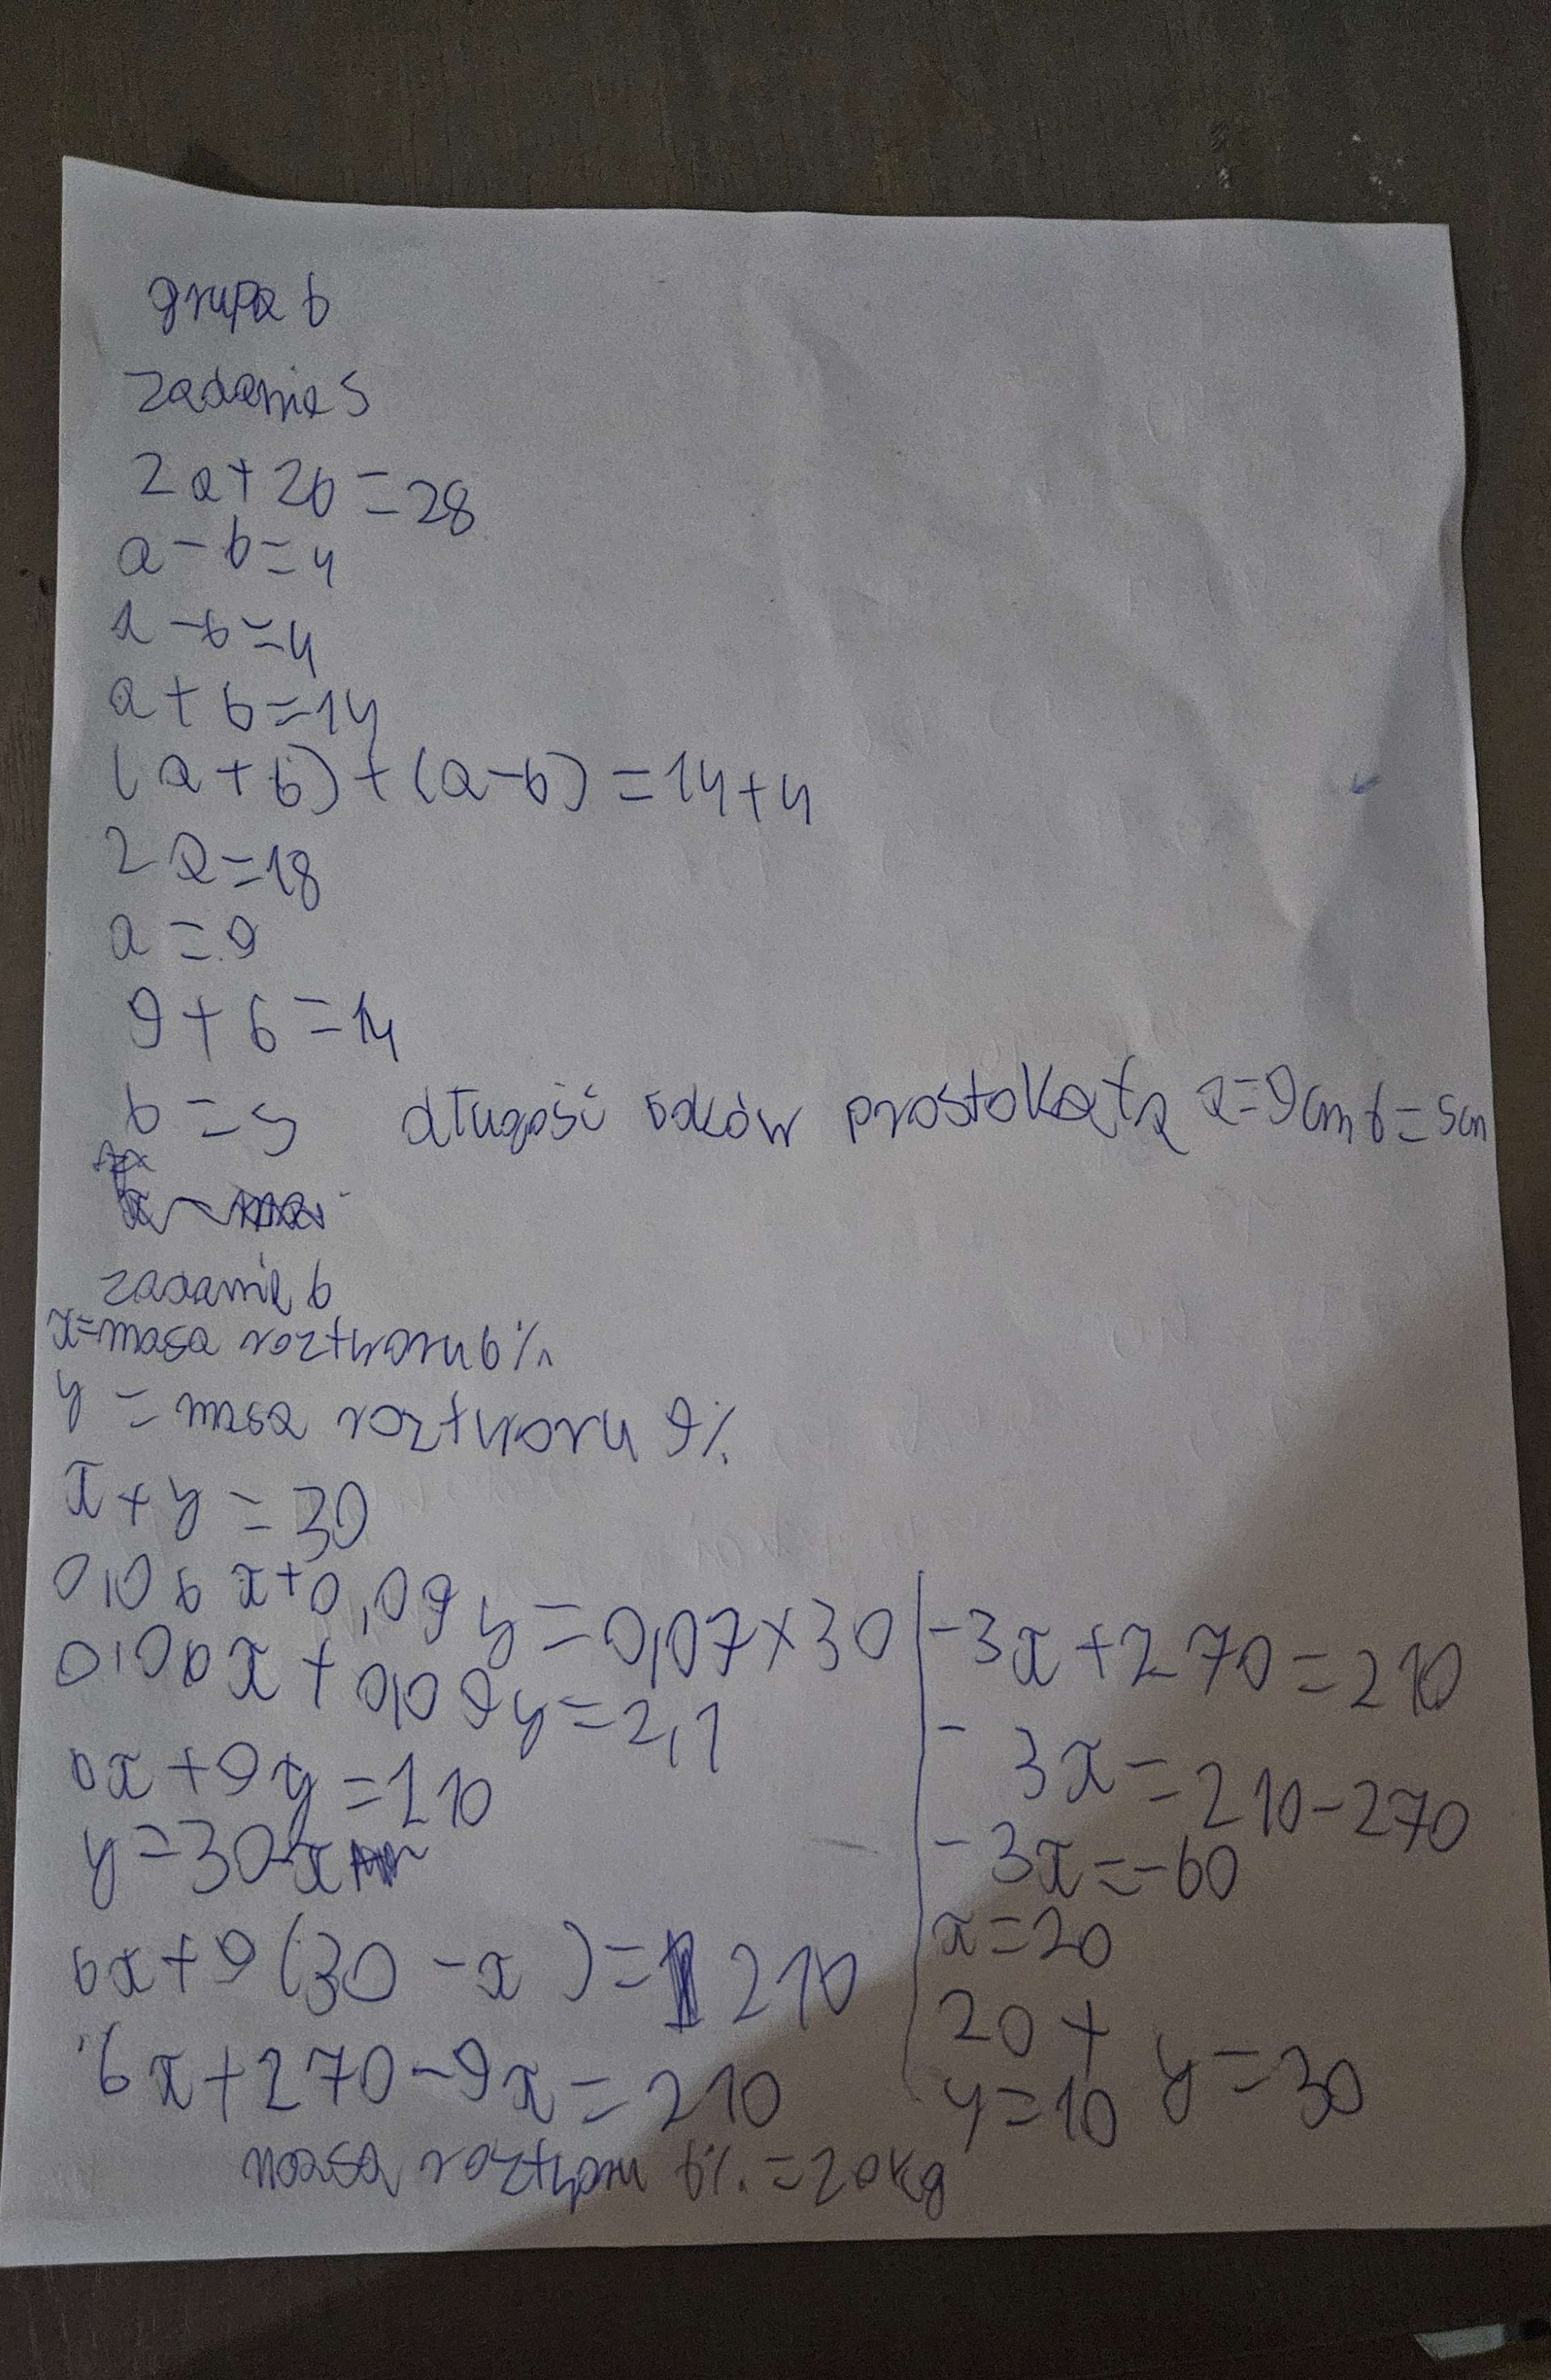 grupa b
zadanie 5
2a+2b=28
a-b=4
a-b=4
a+b=14
(a+b)+(a-b)=14+4
2a=18
a=9
9+b=14
b=5 długość boków prostokąta a=9cm b=5cm
zadanie 6
x=masa roztworu 6%
y=masa roztworu 9%
x+y=30
0,06x+0,09y=0,07×30
0,06x+0,09y=2,1
6x+9y=210
y=30-x
6x+9(30-x)=210
6x+270-9x=210
-3x+270=210
-3x=210-270
-3x=-60
x=20
20+y=30
y=10
masa roztworu 6%=20kg